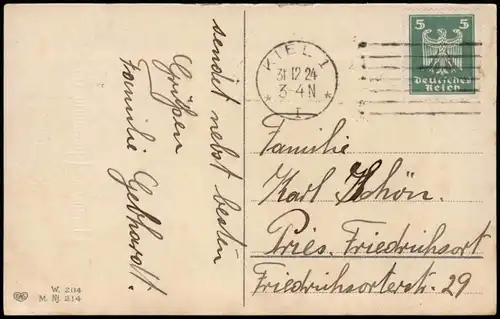 sendet nebst besten
Grüßen
Familie Gebhardt.
W. 284
M. Nj 214
KIEL 1
31.12.24
3-4 N
* I *
5 5
Deutsches
Reich
Familie
Karl Schön.
Pries. Friedrichsort
Friedrichsorterstr. 29